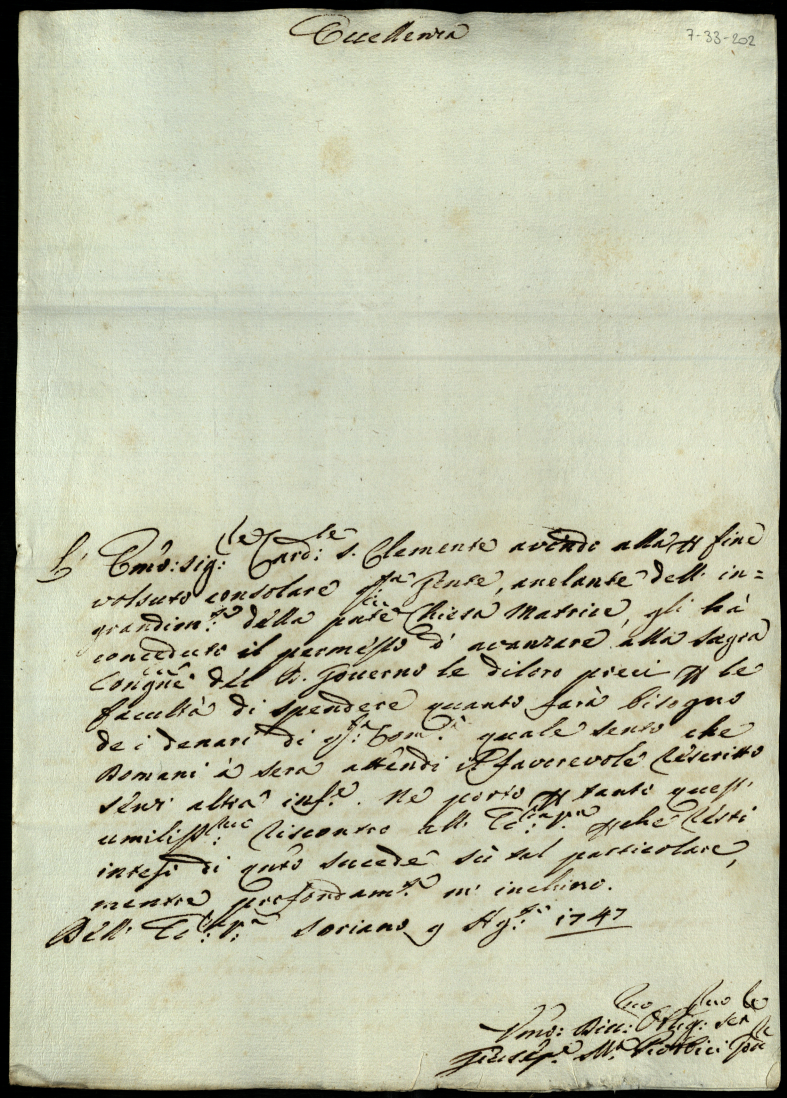 Eccellenza
7-33-202
L' Emo: Sig:re Card:le S. Clemente avendo alla fine
volsuto consolare q:sta Gente, anelante dell' in=
grandim:to della pnte Chiesa Matrice, gli hà
conceduto il permesso d' avanzare alla Sagra
Congne del B. Governo le diloro preci p le
facultà di spendere quanto sarà bisogno
de i denari di q:sta Com:tà quale sento che
Domani à sera attendi il favorevole Rescritto
senz' altra inf:e. Ne porto p tanto quest'
umiliss:mo riscontro all' Ec:za V:ra p che resti
intesa di qnto succede sù tal particolare,
mentre profondam:te m' inchino.
Dell' Ec:za V:ra Soriano 9 Ag:sto 1747
Umo: Div: Oblig: Ser:re
Giusep:e M:a